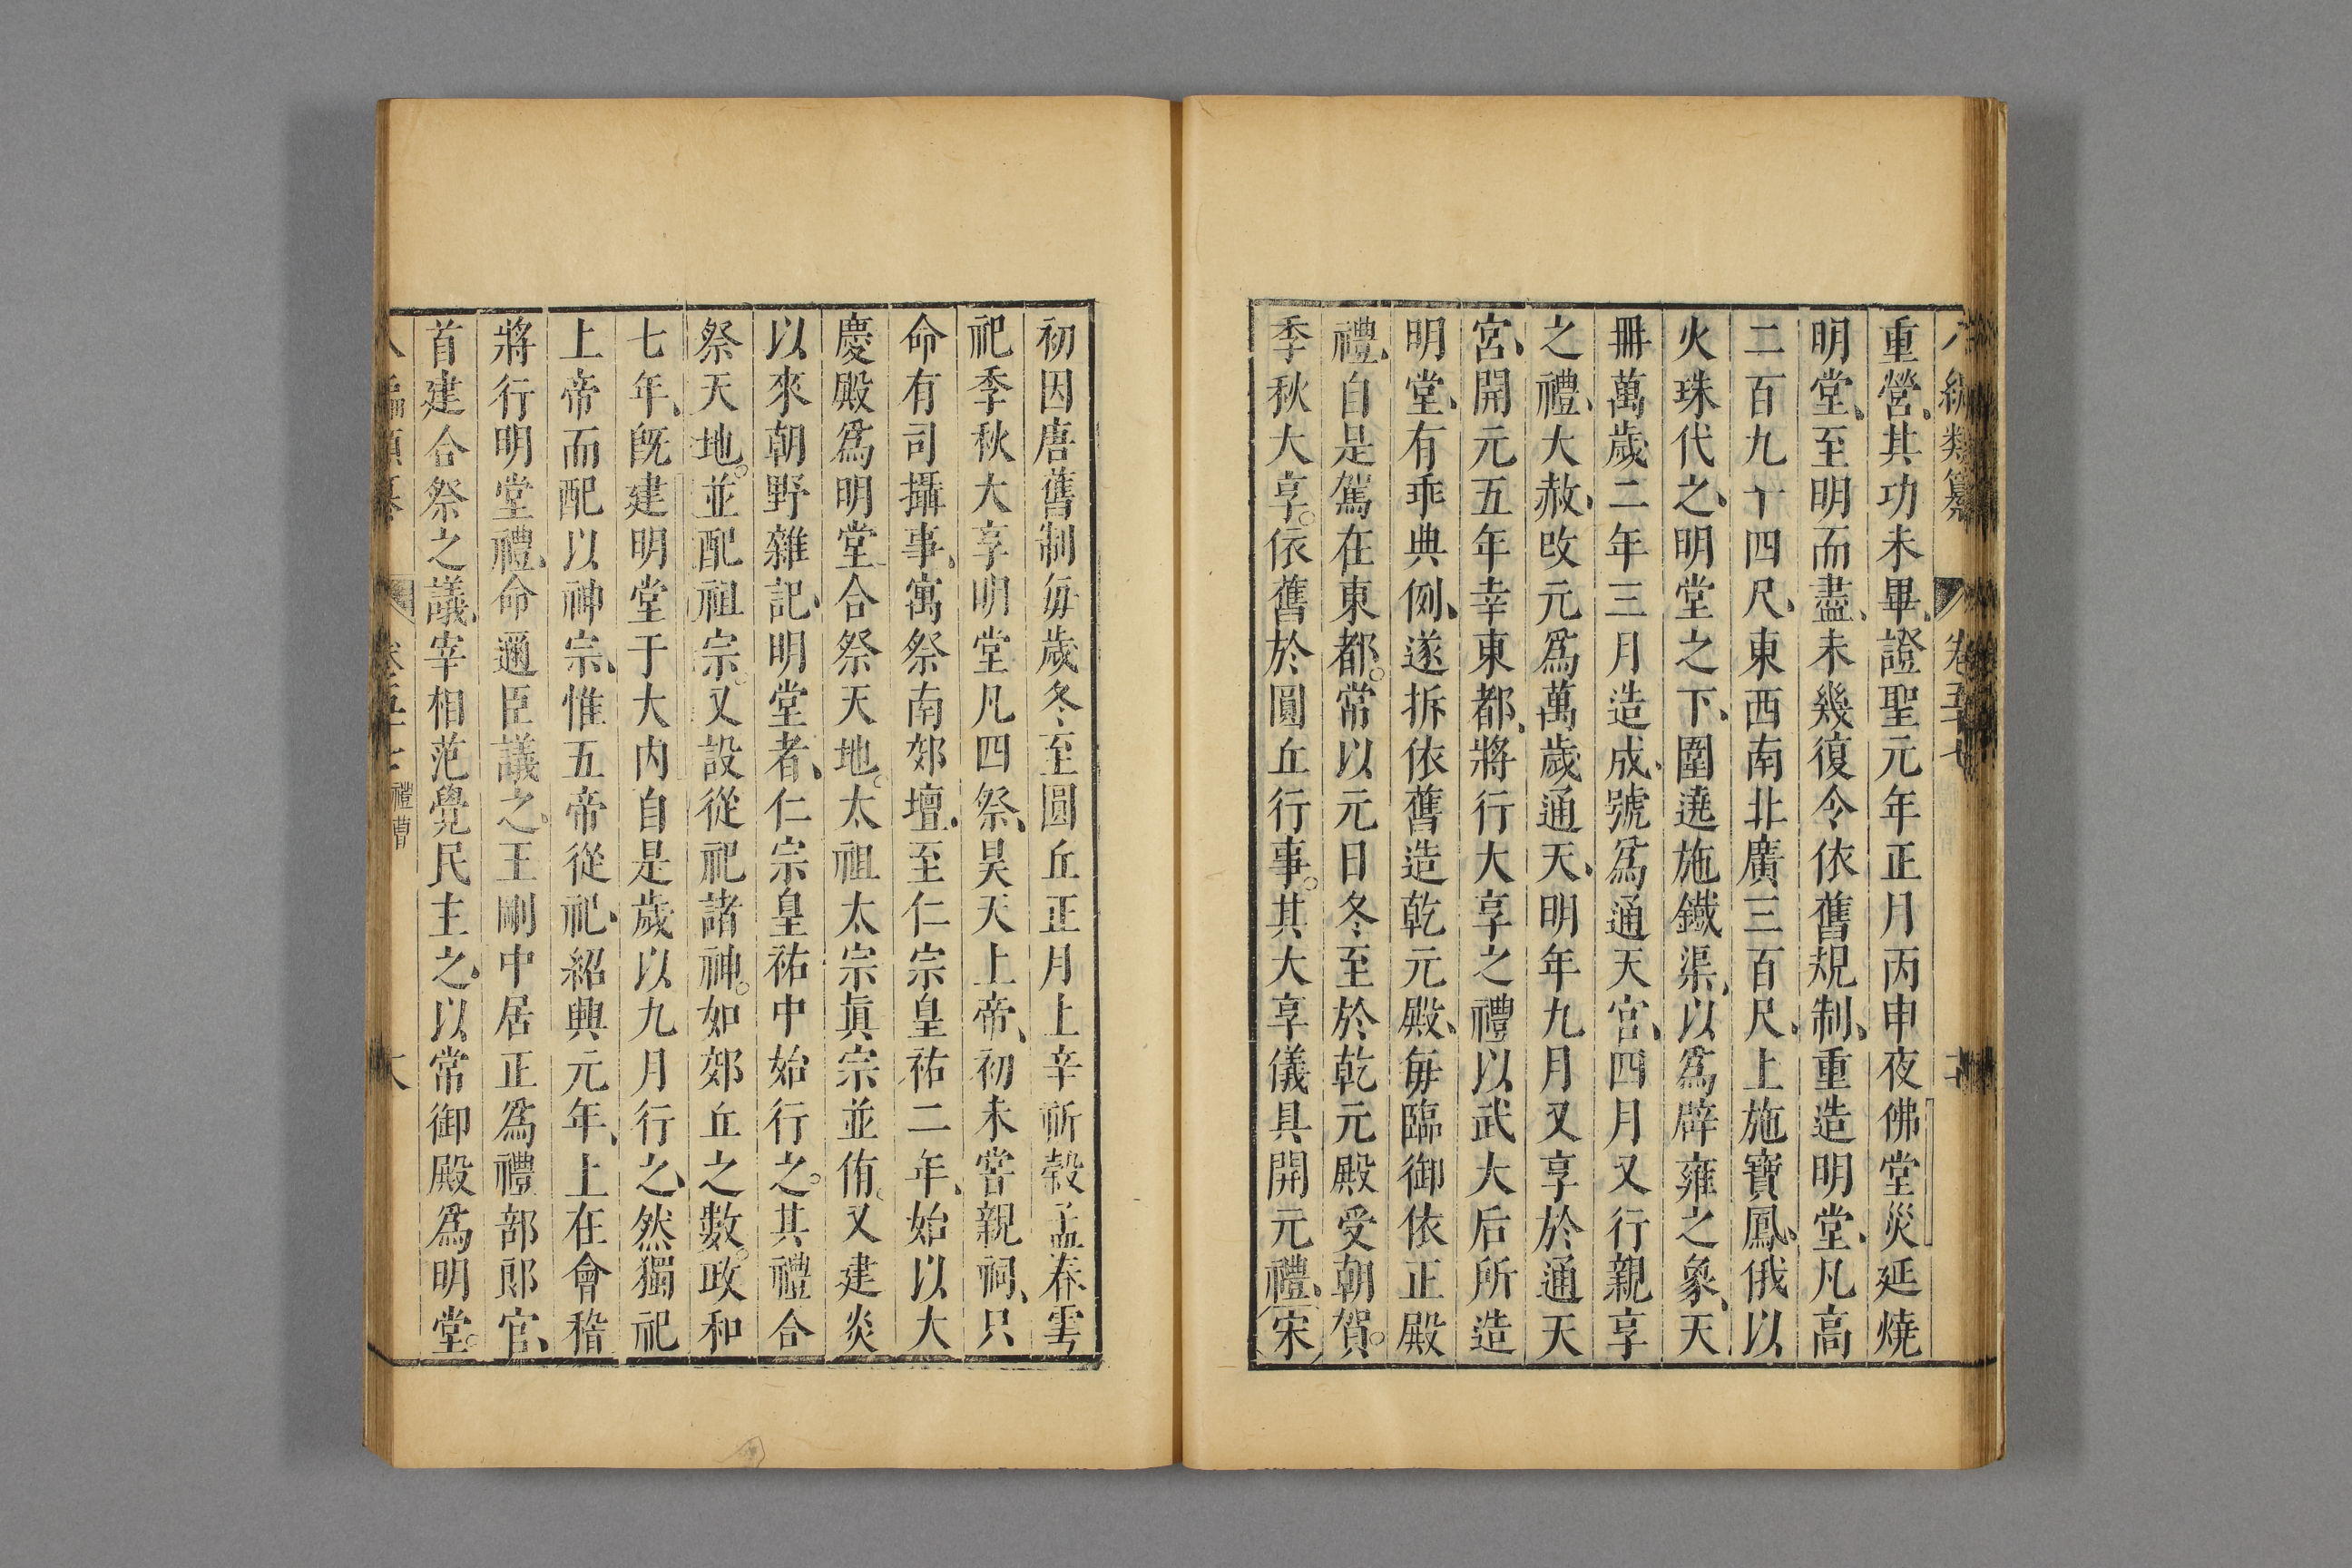 編類纂 卷五十七
重營、其功未畢、證聖元年正月丙申夜佛堂災延燒
明堂、至明而盡、未幾復令依舊規制、重造明堂、凡高
二百九十四尺、東西南北廣三百尺、上施寶鳳、俄以
火珠代之、明堂之下、圍遶施鐵渠、以爲辟雍之象、天
冊萬歲二年三月造成、號爲通天宮、四月又行親享
之禮、大赦、改元爲萬歲通天、明年九月又享於通天
宮、開元五年幸東都、將行大享之禮以武大后所造
明堂、有乖典例、遂拆依舊造乾元殿、毎臨御依正殿
禮、自是駕在東都。常以元日冬至於乾元殿受朝賀。
季秋大享。依舊於圓丘行事。其大享儀具開元禮、宋
初因唐舊制毎歲冬至圓丘正月上辛祈穀孟春雩
祀季秋大享明堂凡四祭、昊天上帝、初未嘗親祠、只
命有司攝事、寓祭南郊壇、至仁宗皇祐二年、始以大
慶殿爲明堂合祭天地。太祖太宗眞宗並侑。又建炎
以來朝野雜記、明堂者、仁宗皇祐中始行之。其禮合
祭天地。並配祖宗。又設從祀諸神。如郊丘之數。政和
七年、旣建明堂于大内自是歲以九月行之、然獨祀
上帝而配以神宗、惟五帝從祀、紹興元年、上在會稽
將行明堂禮、命邇臣議之、王剛中居正爲禮部郎官、
首建合祭之議、宰相范覺民主之、以常御殿爲明堂。
編類纂 卷五十七 禮曹